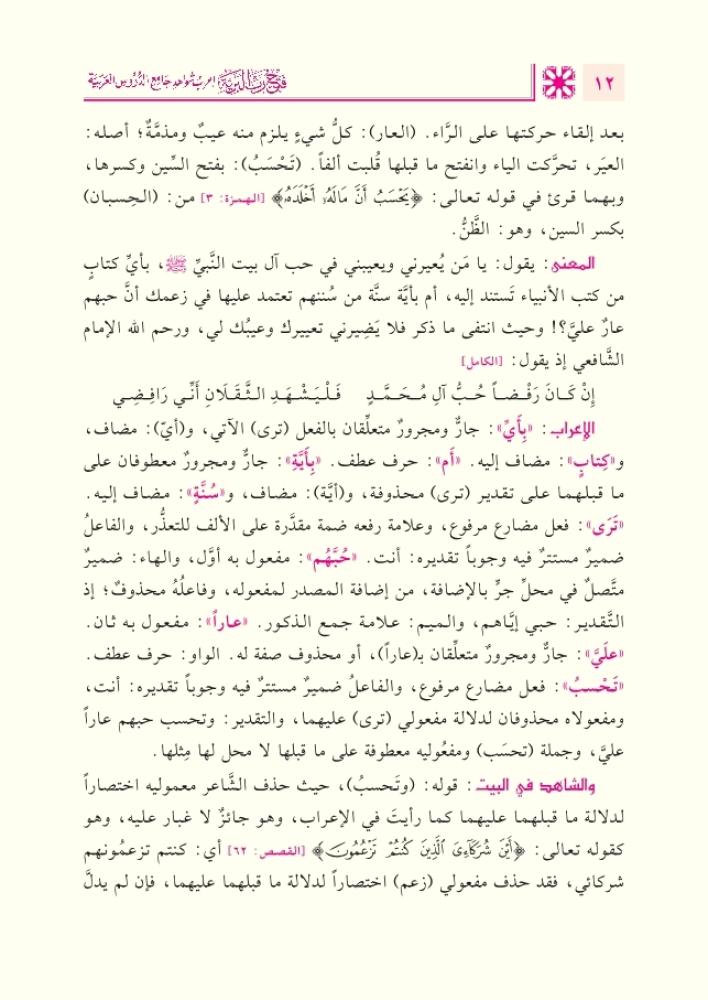 ١٢ فتح رب البرية إعراب شواهد جامع الدروس العربية
بعد إلقاء حركتها على الرَّاء. (العار): كلُّ شيءٍ يلزم منه عيبٌ ومذمَّةٌ؛ أصله:
العيَر، تحرَّكت الياء وانفتح ما قبلها قُلبت ألفاً. (تَحْسَبُ): بفتح السِّين وكسرها،
وبهما قرئ في قوله تعالى: ﴿يَحْسَبُ أَنَّ مَالَهُۥٓ أَخْلَدَهُۥ﴾ [الهمزة: ٣] من: (الحِسبان)
بكسر السين، وهو: الظَّنُّ.
المعنى: يقول: يا مَن يُعيرني ويعيبني في حب آل بيت النَّبيِّ ﷺ، بأيِّ كتابٍ
من كتب الأنبياء تَستند إليه، أم بأيَّة سنَّة من سُننهم تعتمد عليها في زعمك أنَّ حبهم
عارٌ عليَّ؟! وحيث انتفى ما ذكر فلا يَضِيرني تعييرك وعيبُك لي، ورحم الله الإمام
الشَّافعي إذ يقول: [الكامل]
إِنْ كَـانَ رَفْـضـاً حُـبُّ آلِ مُـحَـمَّـدٍ فَـلْـيَـشْـهَـدِ الـثَّـقَـلَانِ أَنِّـي رَافِـضِـي
الإعراب: «بِأَيِّ»: جارٌّ ومجرورٌ متعلِّقان بالفعل (ترى) الآتي، و(أيّ): مضاف،
و«كِتابٍ»: مضاف إليه. «أَم»: حرف عطف. «بِأَيَّةِ»: جارٌّ ومجرورٌ معطوفان على
ما قبلهما على تقدير (ترى) محذوفة، و(أيَّة): مضاف، و«سُنَّةٍ»: مضاف إليه.
«تَرَى»: فعل مضارع مرفوع، وعلامة رفعه ضمة مقدَّرة على الألف للتعذُّر، والفاعلُ
ضميرٌ مستترٌ فيه وجوباً تقديره: أنت. «حُبَّهُم»: مفعول به أوَّل، والهاء: ضميرٌ
متَّصلٌ في محلِّ جرٍّ بالإضافة، من إضافة المصدر لمفعوله، وفاعلُهُ محذوفٌ؛ إذ
التَّقدير: حبي إيَّاهم، والميم: علامة جمع الذكور. «عاراً»: مفعول به ثان.
«علَيَّ»: جارٌّ ومجرورٌ متعلِّقان بـ(عاراً)، أو محذوف صفة له. الواو: حرف عطف.
«تَحْسبُ»: فعل مضارع مرفوع، والفاعلُ ضميرٌ مستترٌ فيه وجوباً تقديره: أنت،
ومفعولاه محذوفان لدلالة مفعولي (ترى) عليهما، والتقدير: وتحسب حبهم عاراً
عليَّ، وجملة (تحسَب) ومفعُوليه معطوفة على ما قبلها لا محل لها مِثلها.
والشاهد في البيت: قوله: (وتَحسبُ)، حيث حذف الشَّاعر معموليه اختصاراً
لدلالة ما قبلهما عليهما كما رأيتَ في الإعراب، وهو جائزٌ لا غبار عليه، وهو
كقوله تعالى: ﴿أَيْنَ شُرَكَآءِىَ ٱلَّذِينَ كُنتُمْ تَزْعُمُونَ﴾ [القصص: ٦٢] أي: كنتم تزعمُونهم
شركائي، فقد حذف مفعولي (زعم) اختصاراً لدلالة ما قبلهما عليهما، فإن لم يدلَّ